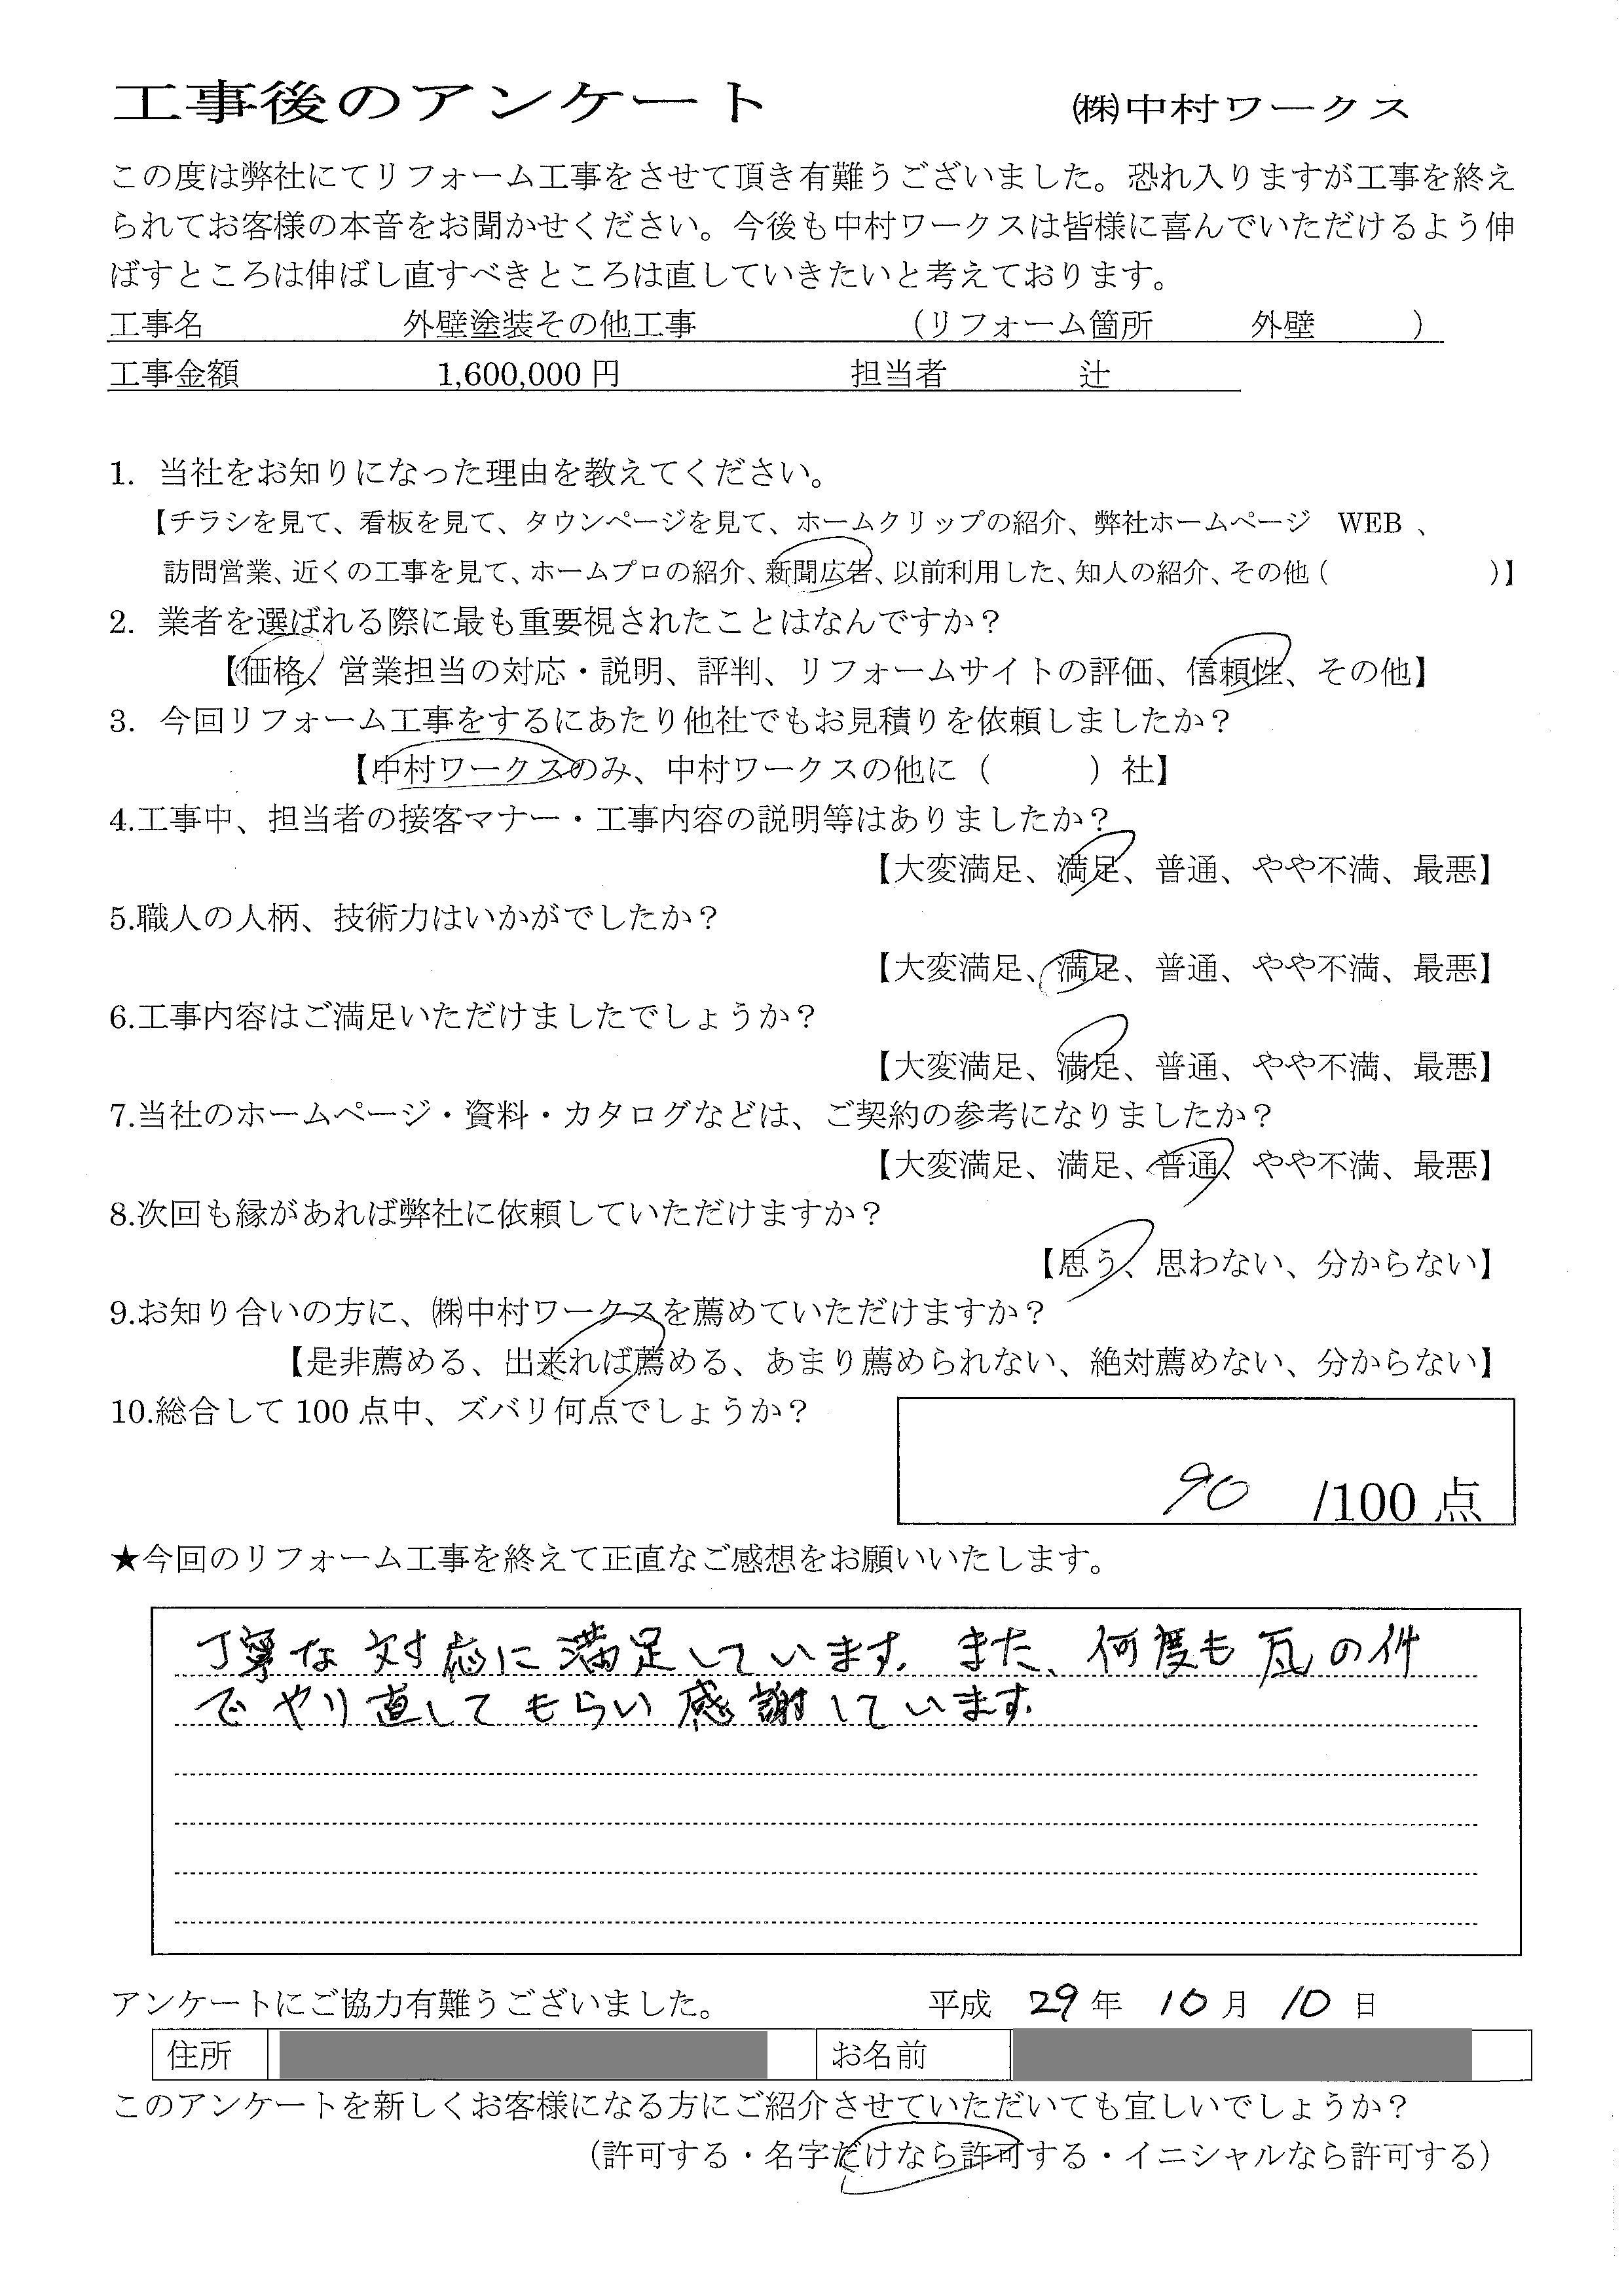 工事後のアンケート ㈱中村ワークス
この度は弊社にてリフォーム工事をさせて頂き有難うございました。恐れ入りますが工事を終え
られてお客様の本音をお聞かせください。今後も中村ワークスは皆様に喜んでいただけるよう伸
ばすところは伸ばし直すべきところは直していきたいと考えております。
工事名 外壁塗装その他工事 （リフォーム箇所 外壁 ）
工事金額 1,600,000 円 担当者 辻
1. 当社をお知りになった理由を教えてください。
【チラシを見て、看板を見て、タウンページを見て、ホームクリップの紹介、弊社ホームページ WEB 、
訪問営業、近くの工事を見て、ホームプロの紹介、新聞広告、以前利用した、知人の紹介、その他（ ）】
2. 業者を選ばれる際に最も重要視されたことはなんですか？
【価格、営業担当の対応・説明、評判、リフォームサイトの評価、信頼性、その他】
3. 今回リフォーム工事をするにあたり他社でもお見積りを依頼しましたか？
【中村ワークスのみ、中村ワークスの他に（ ）社】
4.工事中、担当者の接客マナー・工事内容の説明等はありましたか？
【大変満足、満足、普通、やや不満、最悪】
5.職人の人柄、技術力はいかがでしたか？
【大変満足、満足、普通、やや不満、最悪】
6.工事内容はご満足いただけましたでしょうか？
【大変満足、満足、普通、やや不満、最悪】
7.当社のホームページ・資料・カタログなどは、ご契約の参考になりましたか？
【大変満足、満足、普通、やや不満、最悪】
8.次回も縁があれば弊社に依頼していただけますか？
【思う、思わない、分からない】
9.お知り合いの方に、㈱中村ワークスを薦めていただけますか？
【是非薦める、出来れば薦める、あまり薦められない、絶対薦めない、分からない】
10.総合して 100 点中、ズバリ何点でしょうか？
90 /100 点
★今回のリフォーム工事を終えて正直なご感想をお願いいたします。
丁寧な対応に満足しています。また、何度も瓦の件
でやり直してもらい感謝しています。
アンケートにご協力有難うございました。 平成 29 年 10 月 10 日
住所 お名前
このアンケートを新しくお客様になる方にご紹介させていただいても宜しいでしょうか？
（許可する・名字だけなら許可する・イニシャルなら許可する）